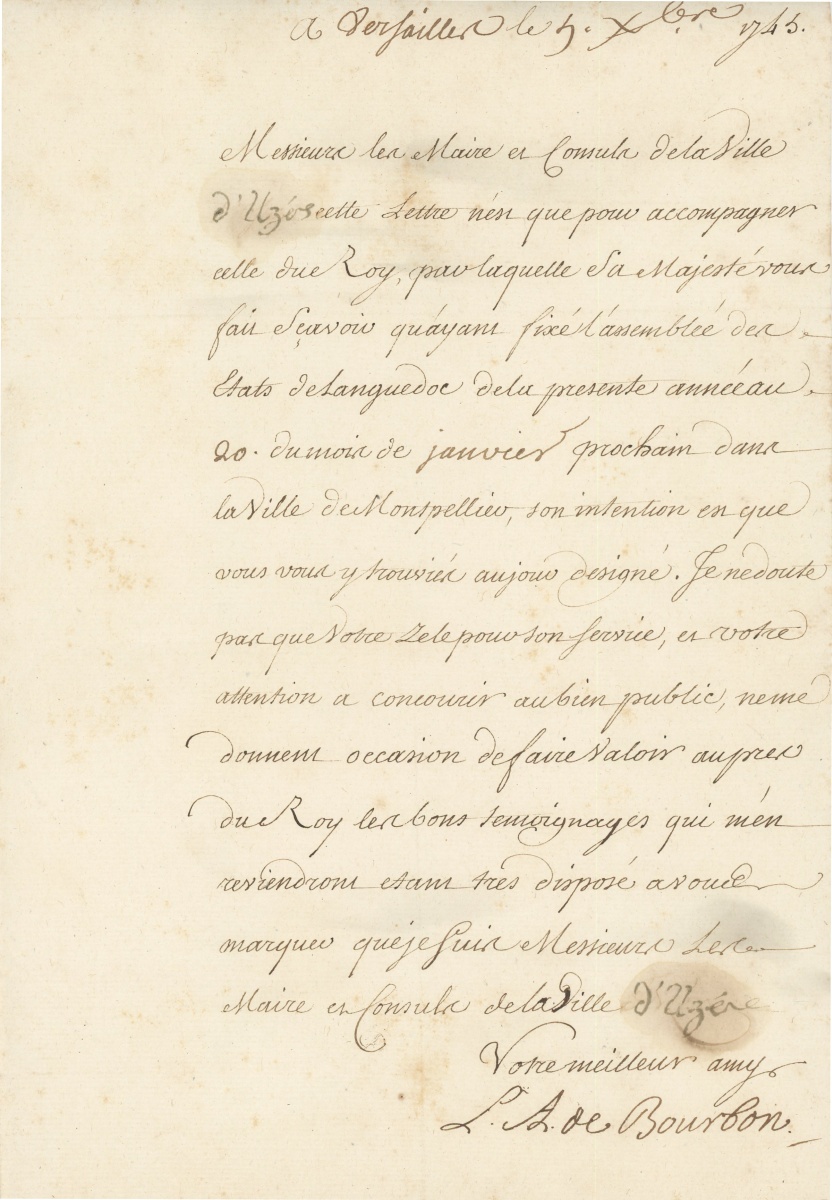 A Versailles le 5. Xbre 1745.
Messieurs les Maire et Consuls de la Ville
d'Uzés cette Lettre n'est que pour accompagner
celle du Roy, par laquelle Sa Majesté vous
fait Sçavoir qu'ayant fixé l'assemblée des
Etats de Languedoc de la presente année au
20. du mois de janvier prochain dans
la Ville de Montpellier, son intention est que
vous vous y trouviés au jour designé. Je ne doute
pas que Votre Zele pour son Service, et votre
attention a concourir au bien public, ne me
donnent occasion de faire Valoir aupres
du Roy les bons temoignages qui m'en
reviendront etant trés disposé a vous
marquer que je Suis Messieurs Les
Maire et Consuls de la Ville d'Uzés
Votre meilleur amy
L. A. de Bourbon.